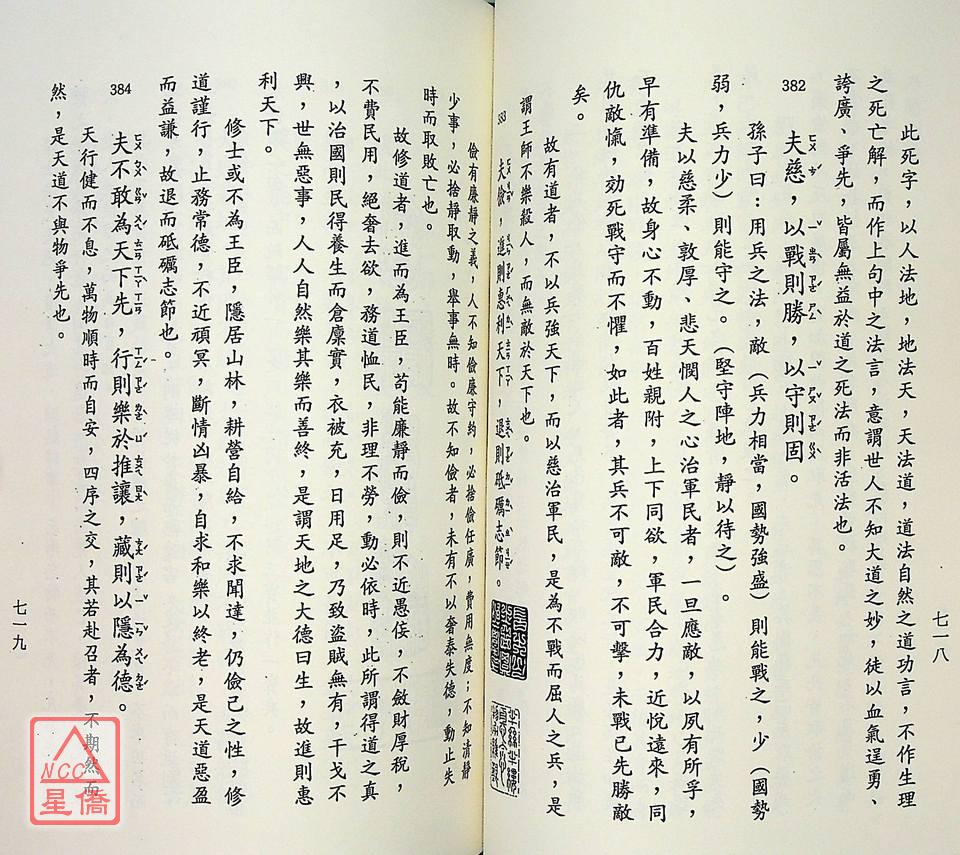 此死字，以人法地，地法天，天法道，道法自然之道功言，不作生理
之死亡解，而作上句中之法言，意謂世人不知大道之妙，徒以血氣逞勇、
誇廣、爭先，皆屬無益於道之死法而非活法也。
382 夫慈，以戰則勝，以守則固。
孫子曰：用兵之法，敵（兵力相當，國勢強盛）則能戰之，少（國勢
弱，兵力少）則能守之。（堅守陣地，靜以待之）。
夫以慈柔、敦厚、悲天憫人之心治軍民者，一旦應敵，以夙有所孚，
早有準備，故身心不動，百姓親附，上下同欲，軍民合力，近悅遠來，同
仇敵愾，効死戰守而不懼，如此者，其兵不可敵，不可擊，未戰已先勝敵
矣。
故有道者，不以兵強天下，而以慈治軍民，是為不戰而屈人之兵，是
謂王師不樂殺人，而無敵於天下也。
383 夫儉，進則惠利天下，退則砥礪志節。
七一八
儉有廉靜之義，人不知儉廉守約，必捨儉任廣，費用無度；不知清靜
少事，必捨靜取動，舉事無時。故不知儉者，未有不以奢泰失德，動止失
時而取敗亡也。
故修道者，進而為王臣，苟能廉靜而儉，則不近愚佞，不斂財厚稅，
不費民用，絕奢去欲，務道恤民，非理不勞，動必依時，此所謂得道之真
，以治國則民得養生而倉廩實，衣被充，日用足，乃致盜賊無有，干戈不
興，世無惡事，人人自然樂其樂而善終，是謂天地之大德曰生，故進則惠
利天下。
修士或不為王臣，隱居山林，耕營自給，不求聞達，仍儉己之性，修
道謹行，止務常德，不近頑冥，斷情凶暴，自求和樂以終老，是天道惡盈
而益謙，故退而砥礪志節也。
384 夫不敢為天下先，行則樂於推讓，藏則以隱為德。
天行健而不息，萬物順時而自安，四序之交，其若赴召者，不期然而
然，是天道不與物爭先也。
七一九
NCC
星僑